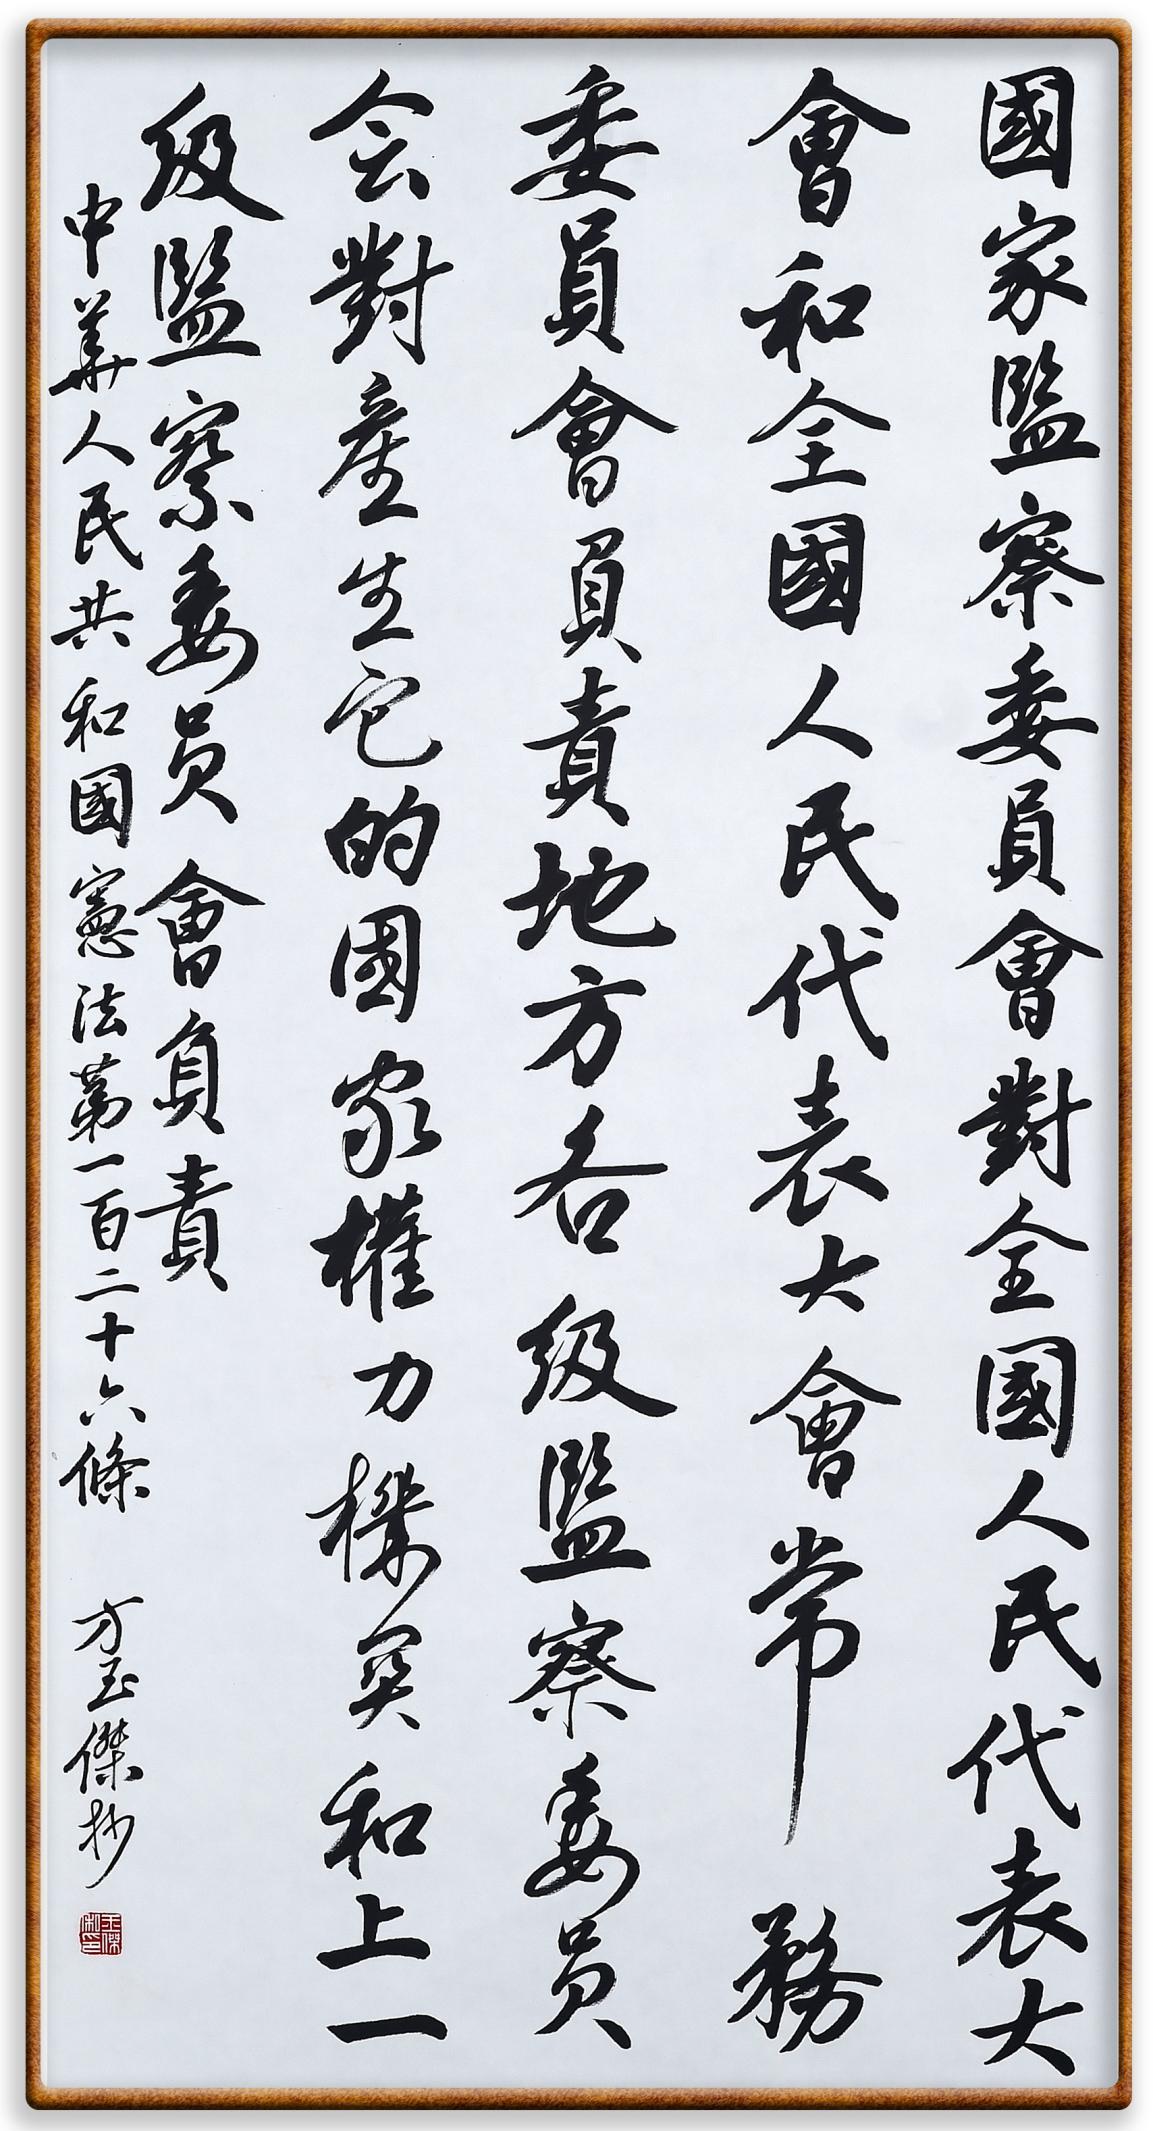 國家監察委員會對全國人民代表大
會和全國人民代表大會常務
委員會負責地方各級監察委员
会對產生它的國家權力機関和上一
級監察委员會負責
中華人民共和國憲法第一百二十六條 方玉傑抄